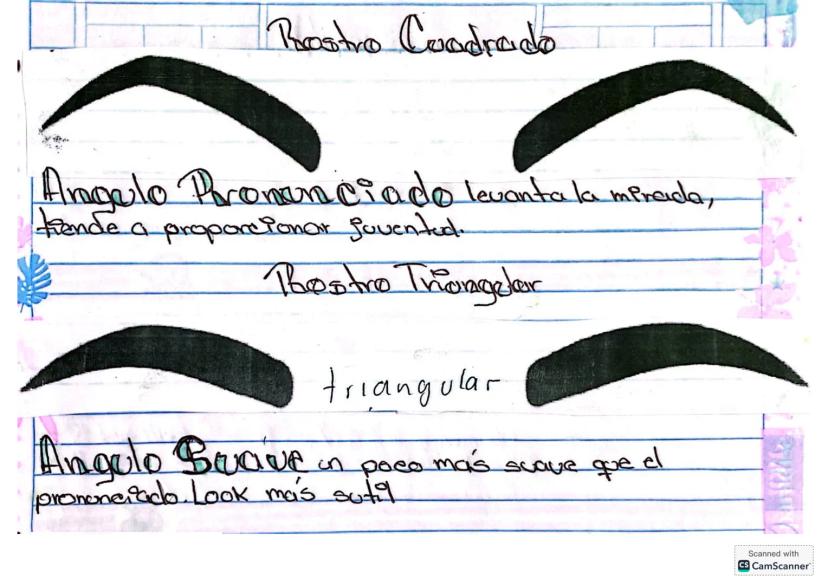 Rostro Cuadrado
Angulo Pronunciado levanta la mirada,
tiende a proporcionar juventud.
Rostro Triangular
triangular
Angulo Suave un poco más suave que el
pronunciado. Look más sutil
Scanned with
CS CamScanner